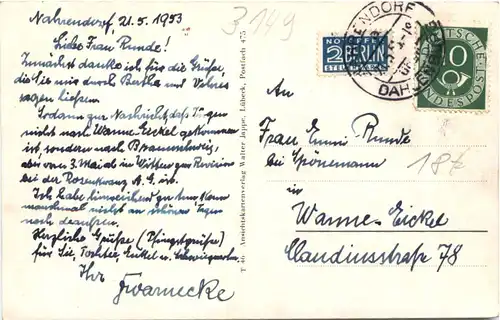 Nahrendorf, 21.5.1953
Liebe Frau Runde!
Zunächst danke ich für die Grüße,
die Sie mir durch Bertha und
sagen ließen.
Sodann zur Nachricht, daß
nicht nach Wanne-Eickel gekommen
ist, sondern nach Braunschweig,
aber vom 3. Mai ab in Witten zur Revision
bei der Rosenkranz A.G. ist.
Ich habe
manchmal nicht an schönen Tagen
nach draußen.
Herzliche Grüße (Pfingstgrüße)
für Sie, Tochter, Enkel u. Schwiegersohn.
Ihr
Warnecke
T 46 Ansichtskartenverlag Walter Jappe, Lübeck, Postfach 475
3149
NOTOPFER
2 BERLIN
STEUERMARKE
NAHRENDORF
DAHLENBURG
10
DEUTSCHE BUNDESPOST
An
Frau Emmi Runde
bei Grönemann
18€
in
Wanne-Eickel
Claudiusstraße 78